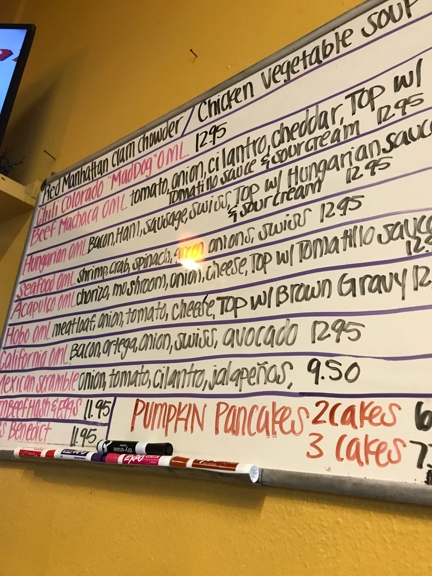 Red Manhattan clam chowder / Chicken Vegetable Soup
Chili Colorado "MadDog" OML 12.95
Beef Machaca OML tomato, onion, cilantro, cheddar, Top w/
Tomatillo sauce & sour cream 12.95
Hungarian OML Bacon, Ham, sausage, swiss, Top w/ Hungarian sauce
& sour cream 12.95
Seafood OML shrimp, crab, spinach, onions, swiss 12.95
Acapulco OML chorizo, mushroom, onion, cheese, Top w/ Tomatillo sauce
Hobo OML meatloaf, onion, tomato, cheese, Top w/ Brown Gravy 12
California OML Bacon, ortega, onion, swiss, avocado 12.95
Mexican scramble onion, tomato, cilantro, jalapeños, 9.50
Beef Hash & Eggs 11.95
Benedict 11.95
Pumpkin Pancakes 2 cakes 6
3 cakes 7
EXPO